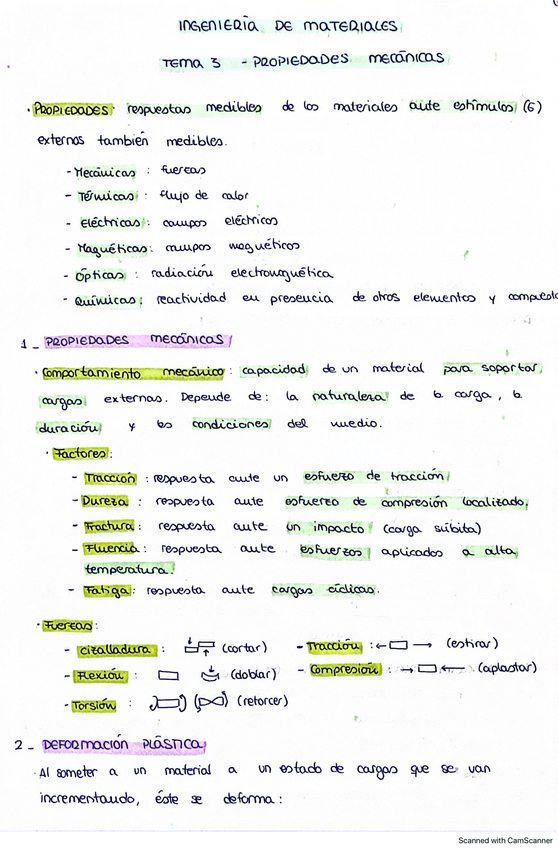 INGENIERÍA DE MATERIALES
TEMA 3 - PROPIEDADES MECÁNICAS
· PROPIEDADES: respuestas medibles de los materiales ante estímulos (6)
externos también medibles.
- Mecánicas : fuerzas
- Térmicas : flujo de calor
- Eléctricas : campos eléctricos
- Magnéticas : campos magnéticos
- Ópticas : radiación electromagnética
- Químicas : reactividad en presencia de otros elementos y compuesto
1 _ PROPIEDADES MECÁNICAS
· Comportamiento mecánico : capacidad de un material para soportar
cargas externas. Depende de: la naturaleza de la carga, la
duración y las condiciones del medio.
· Factores:
- Tracción : respuesta ante un esfuerzo de tracción
- Dureza : respuesta ante esfuerzo de compresión localizado
- Fractura : respuesta ante un impacto (carga súbita)
- Fluencia : respuesta ante esfuerzos aplicados a alta
temperatura.
- Fatiga : respuesta ante cargas cíclicas.
· Fuerzas:
- Cizalladura : (cortar) - Tracción : (estirar)
- Flexión : (doblar) - Compresión : (aplastar)
- Torsión : (retorcer)
2 _ DEFORMACIÓN PLÁSTICA
· Al someter a un material a un estado de cargas que se van
incrementando, éste se deforma :
Scanned with CamScanner